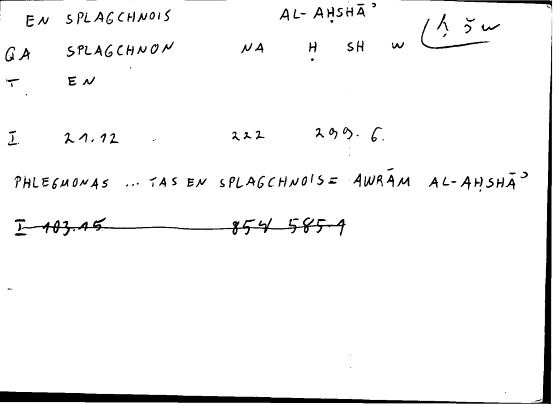 EN SPLAGCHNOIS AL-AḤSHĀʾ ḥ š w
QA SPLAGCHNON NA Ḥ SH W
T EN
I. 21.12 222 299. 6.
PHLEGMONAS ... TAS EN SPLAGCHNOIS = AWRĀM AL-AḤSHĀʾ
I 103.15 854 585.1